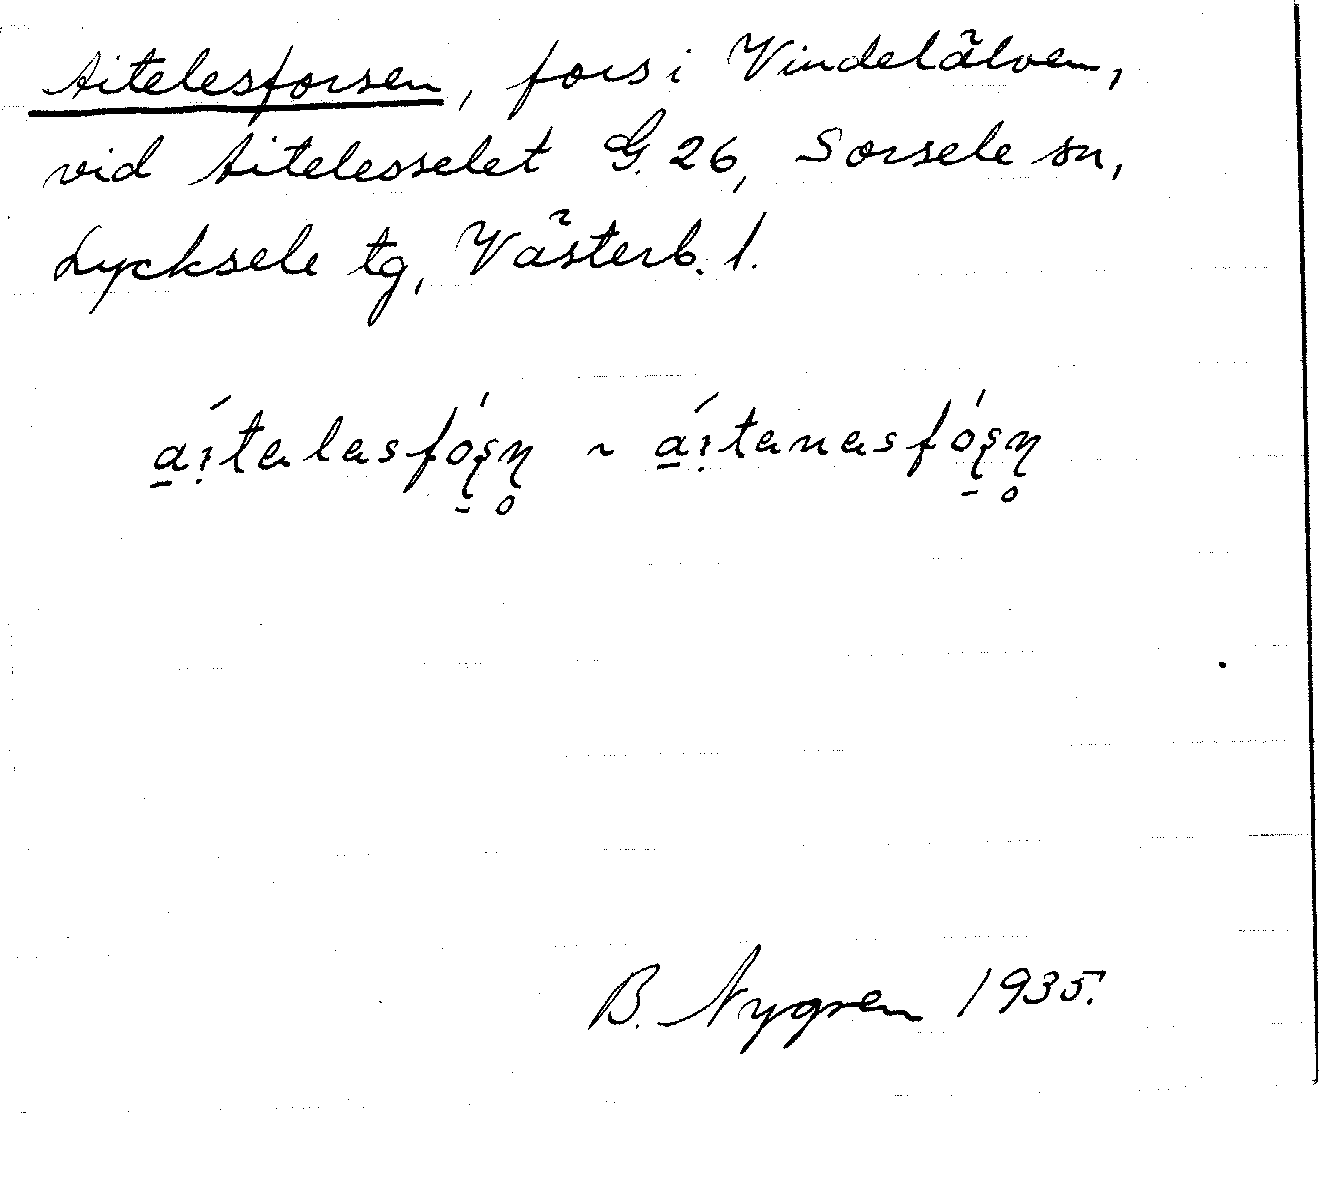 Aitelesforsen, fors i Vindelälven,
vid Aitelesselet G. 26, Sorsele sn,
Lycksele tg, Västerb. l.
a̱í̩talasfó̱ʂɳ̥ ~ a̱í̩tanasfó̱ʂɳ̥
B. Nygren 1935.